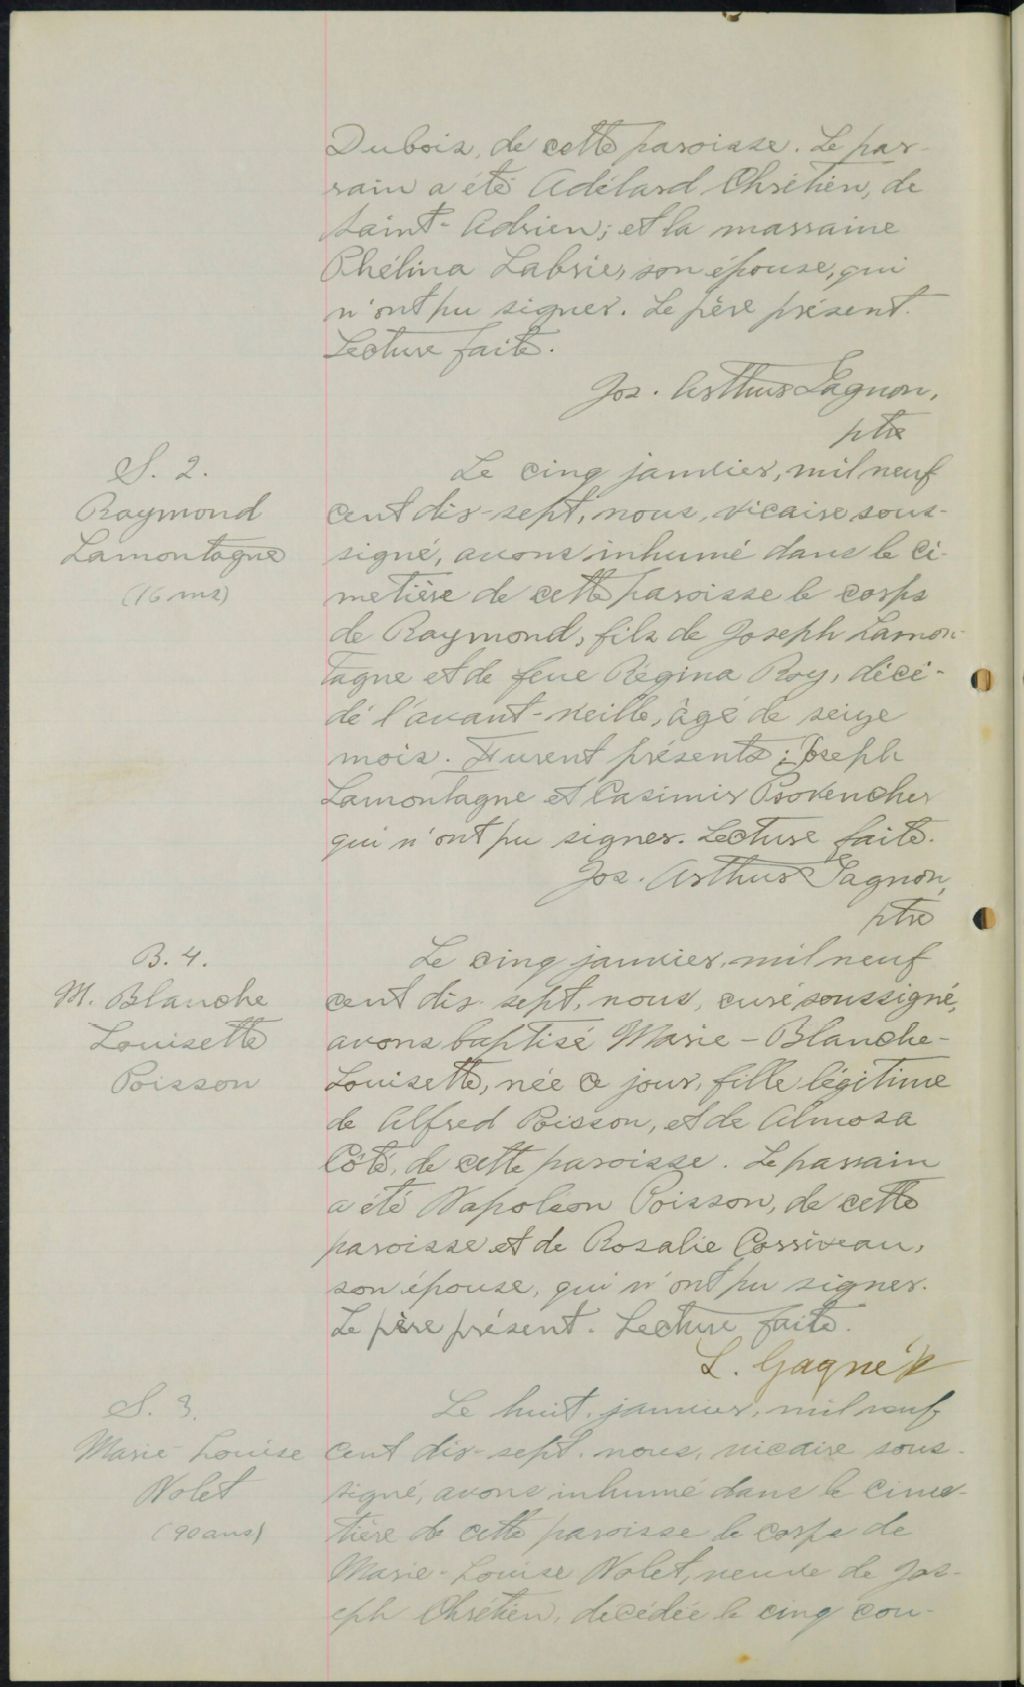 Dubois, de cette paroisse. Le par-
rain a été Adélard Chrétien, de
Saint-Adrien; et la marraine
Phélina Labrie, son épouse, qui
n'ont pu signer. Le père présent.
Lecture faite.
Jos. Arthur Gagnon,
ptre
S. 2.
Raymond
Lamontagne
(16 ms)
Le cinq janvier, mil neuf
cent dix-sept, nous, vicaire sous-
signé, avons inhumé dans le ci-
metière de cette paroisse le corps
de Raymond, fils de Joseph Lamon-
tagne et de feue Régina Roy, décé-
dé l'avant-veille, âgé de seize
mois. Furent présents: Joseph
Lamontagne et Casimir Provencher
qui n'ont pu signer. Lecture faite.
Jos. Arthur Gagnon,
ptre
B. 4.
M. Blanche
Louisette
Poisson
Le cinq janvier, mil neuf
cent dix-sept, nous, curé soussigné,
avons baptisé Marie-Blanche-
Louisette, née ce jour, fille légitime
de Alfred Poisson, et de Almosa
Côté, de cette paroisse. Le parrain
a été Napoléon Poisson, de cette
paroisse et de Rosalie Corriveau,
son épouse, qui n'ont pu signer.
Le père présent. Lecture faite.
L. Gagné
S. 3.
Marie-Louise
Nolet
(90 ans)
Le huit, janvier, mil neuf
cent dix-sept, nous, vicaire sous-
signé, avons inhumé dans le cime-
tière de cette paroisse le corps de
Marie-Louise Nolet, veuve de Jos-
eph Chrétien, décédée le cinq cou-